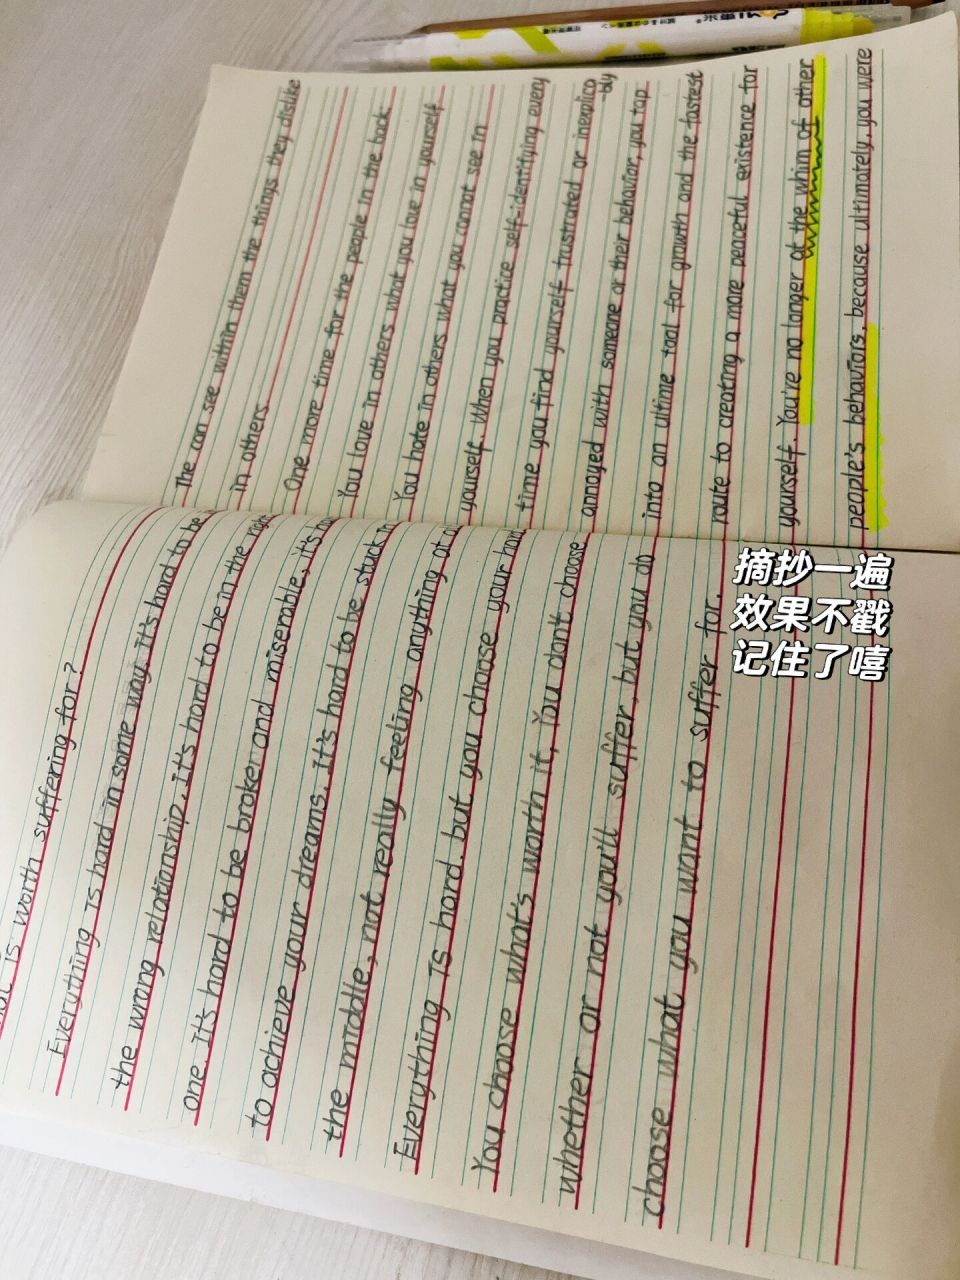 is worth suffering for?
Everything is hard in some way. It's hard to be
the wrong relationship. It's hard to be in the right
one. It's hard to be broken and miserable, it's
to achieve your dreams. It's hard to be stuck in
the middle, not really feeling anything at
Everything is hard. but you choose your hard
You choose what's worth it, You don't choose
whether or not you'll suffer, but you do
choose what you want to suffer for.
The can see within them the things they dislike
in others
One more time for the people in the back:
You love in others what you love in yourself
You hate in others what you cannot see in
yourself. When you practice self-identifying every
time you find yourself frustrated or inexplica
-bly
annoyed with someone or their behavior, you tap
into an ultime tool for growth and the fastest
route to creating a more peaceful existence for
yourself. You're no longer at the whim of other
people's behaviors, because ultimately, you were
摘抄一遍
效果不戳
记住了嘻